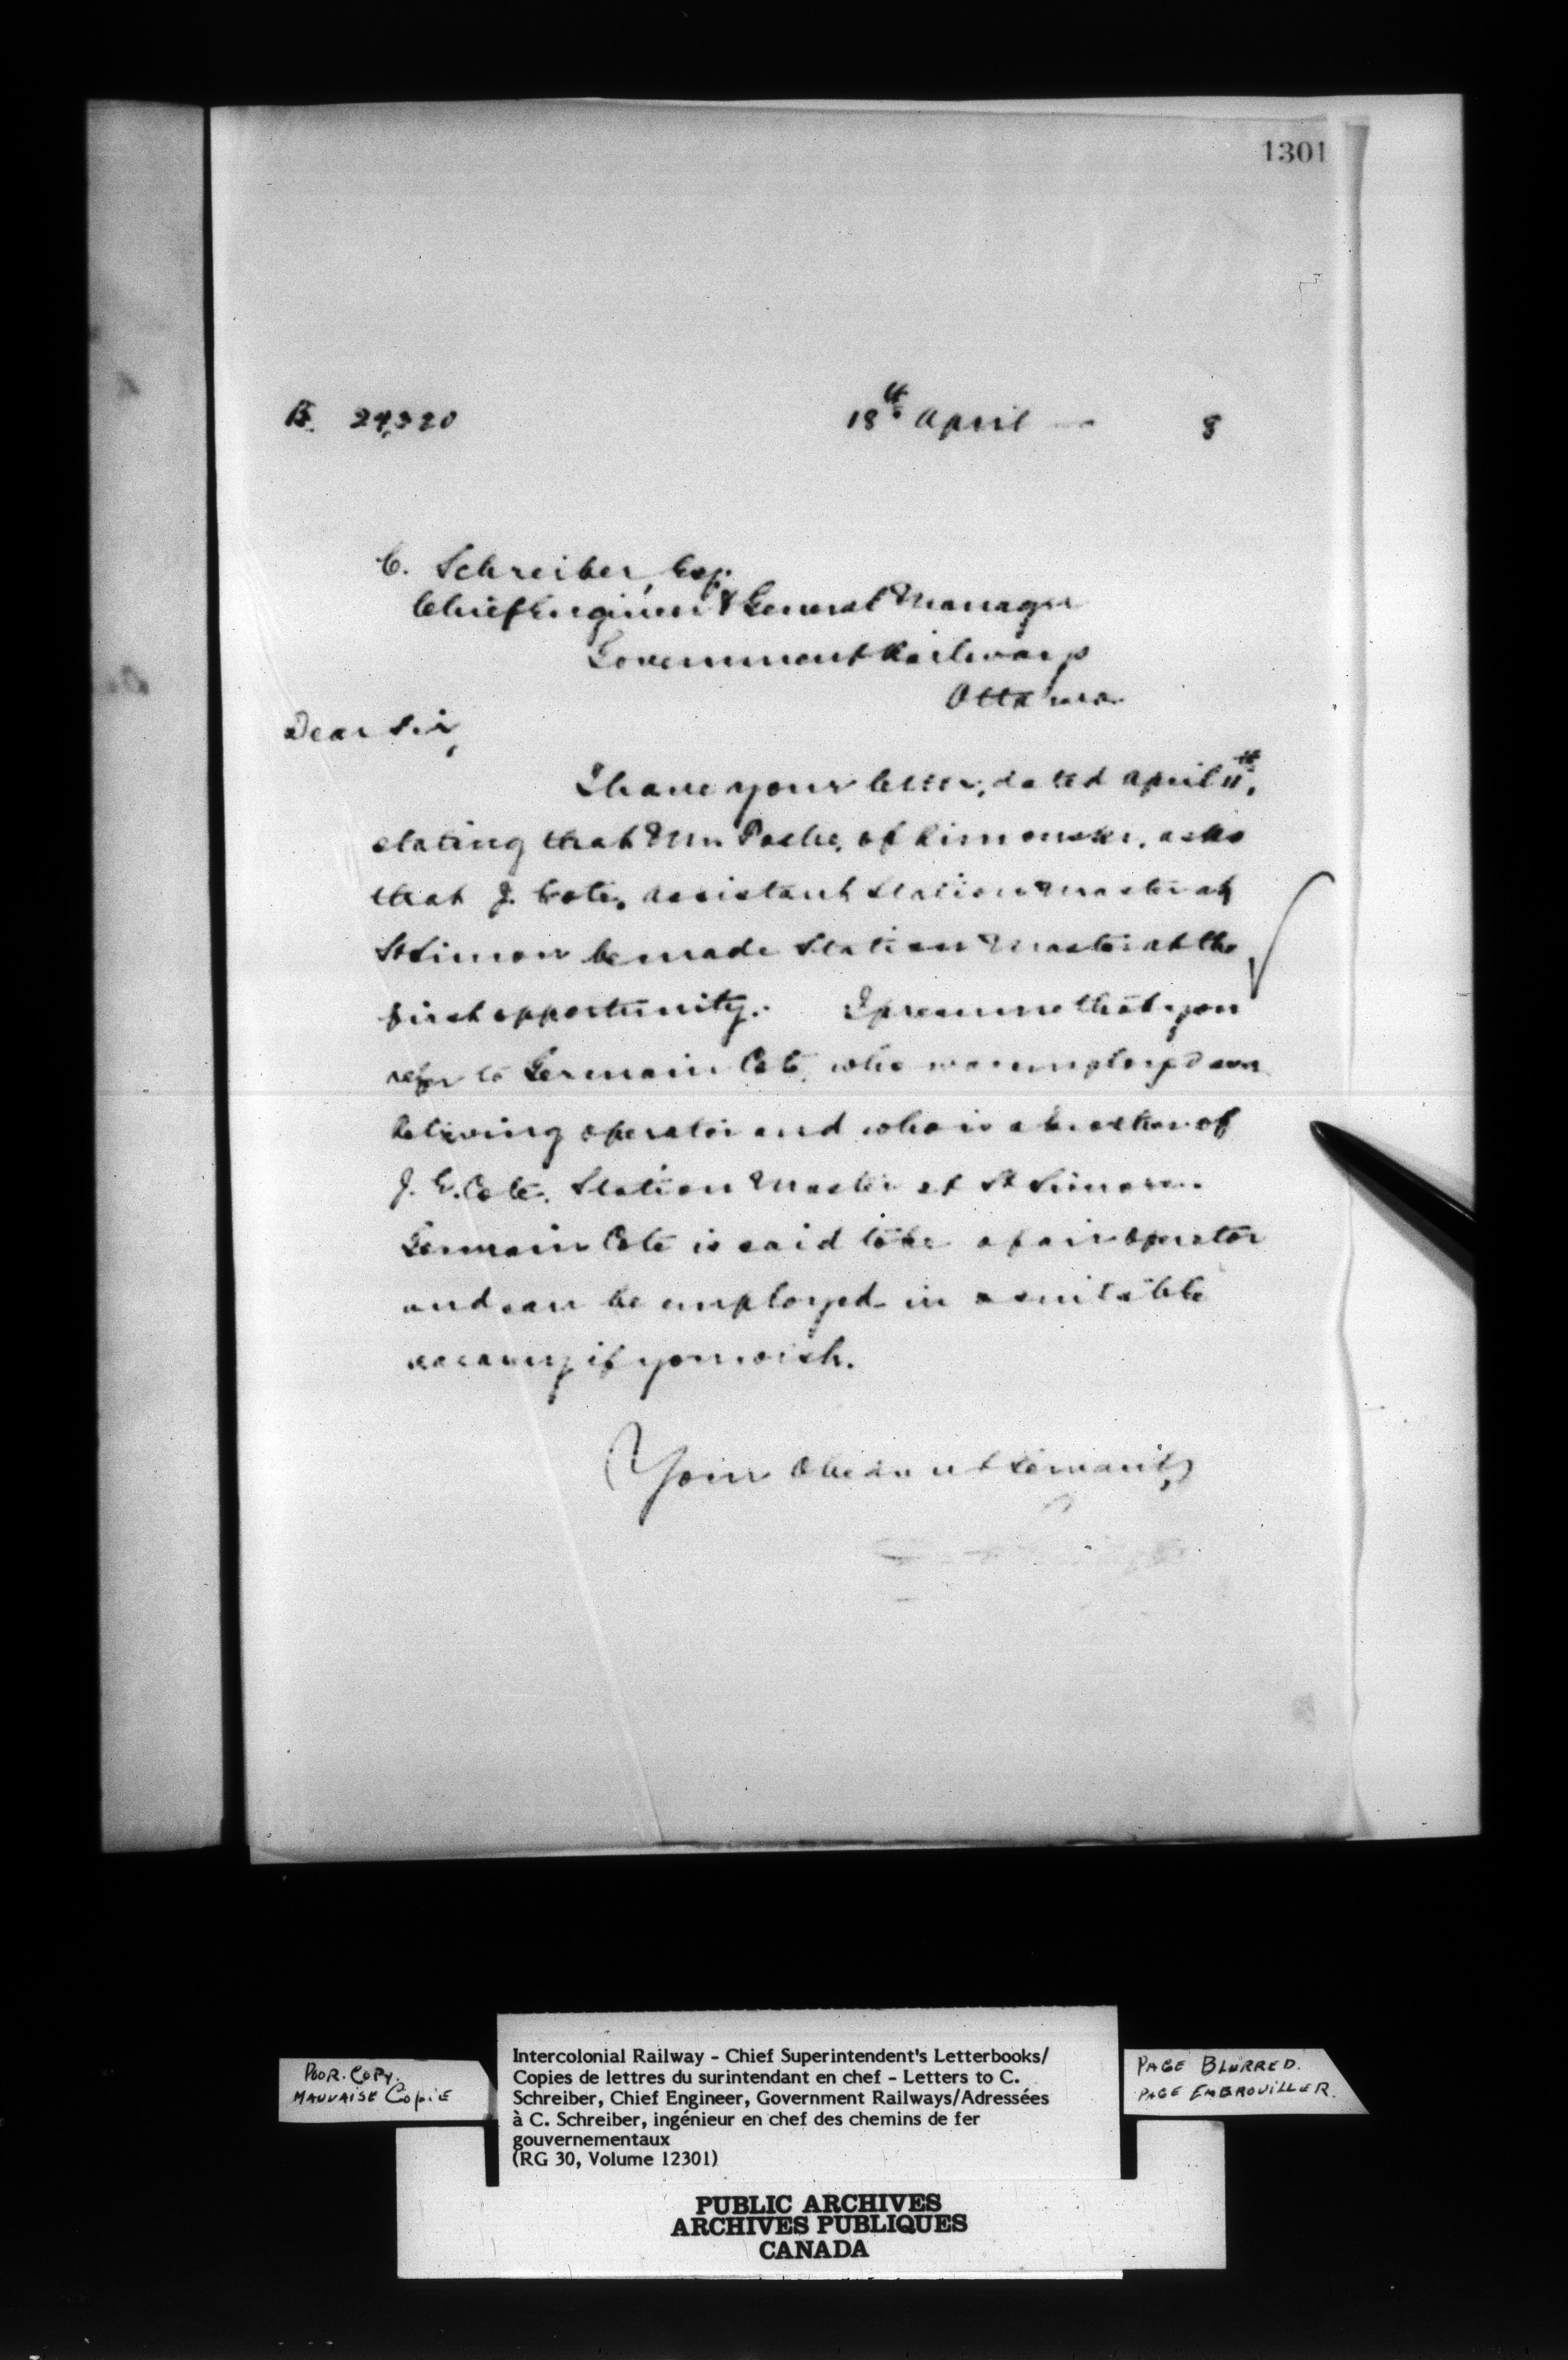 1301
B. 24,320 18th April 8
C. Schreiber, Esq.
Chief Engineer & General Manager
Government Railways
Ottawa
Dear Sir,
I have your letter, dated April 11th,
stating that Mr. of Rimouski, asks
that J. Cote, assistant Station Master at
St Simon be made Station Master at the
first opportunity. I presume that you
refer to Germain Cote, who was employed as a
Relieving operator and who is a brother of
J. E. Cote, Station Master at St Simon.
Germain Cote is said to be a fair operator
and can be employed in a suitable
vacancy if you wish.
Your Obedient Servant,
POOR. COPY.
MAUVAISE COPIE
Intercolonial Railway - Chief Superintendent's Letterbooks/
Copies de lettres du surintendant en chef - Letters to C.
Schreiber, Chief Engineer, Government Railways/Adressées
à C. Schreiber, ingénieur en chef des chemins de fer
gouvernementaux
(RG 30, Volume 12301)
PAGE BLURRED.
PAGE EMBROUILLER.
PUBLIC ARCHIVES
ARCHIVES PUBLIQUES
CANADA